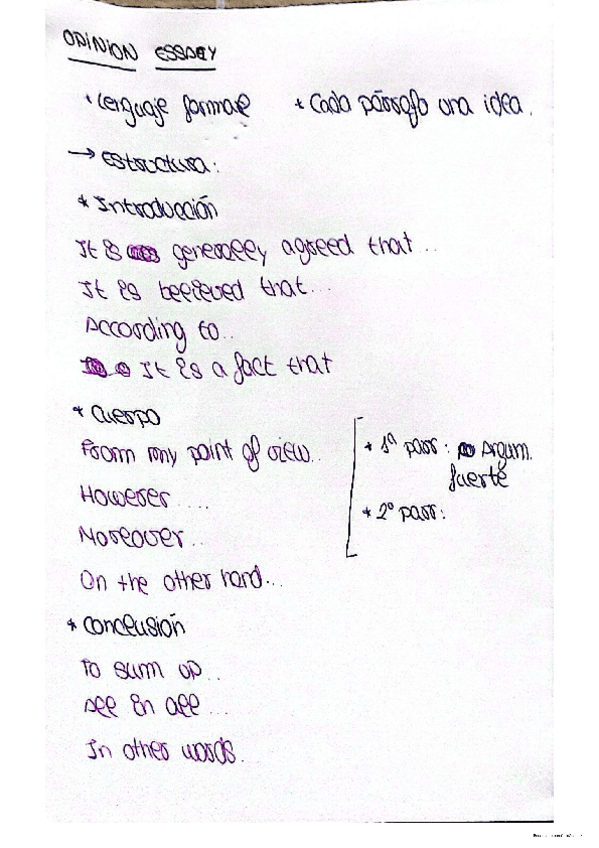 OPINION ESSAY
* Lenguaje formal * Cada párrafo una idea.
→ Estructura:
* Introducción
It is generally agreed that...
It is believed that...
According to..
It is a fact that
* Cuerpo
From my point of view..
However....
Moreover..
On the other hand...
* 1º parr: Argum.
fuerte
* 2º parr:
* Conclusión
To sum up..
All in all...
In other words.